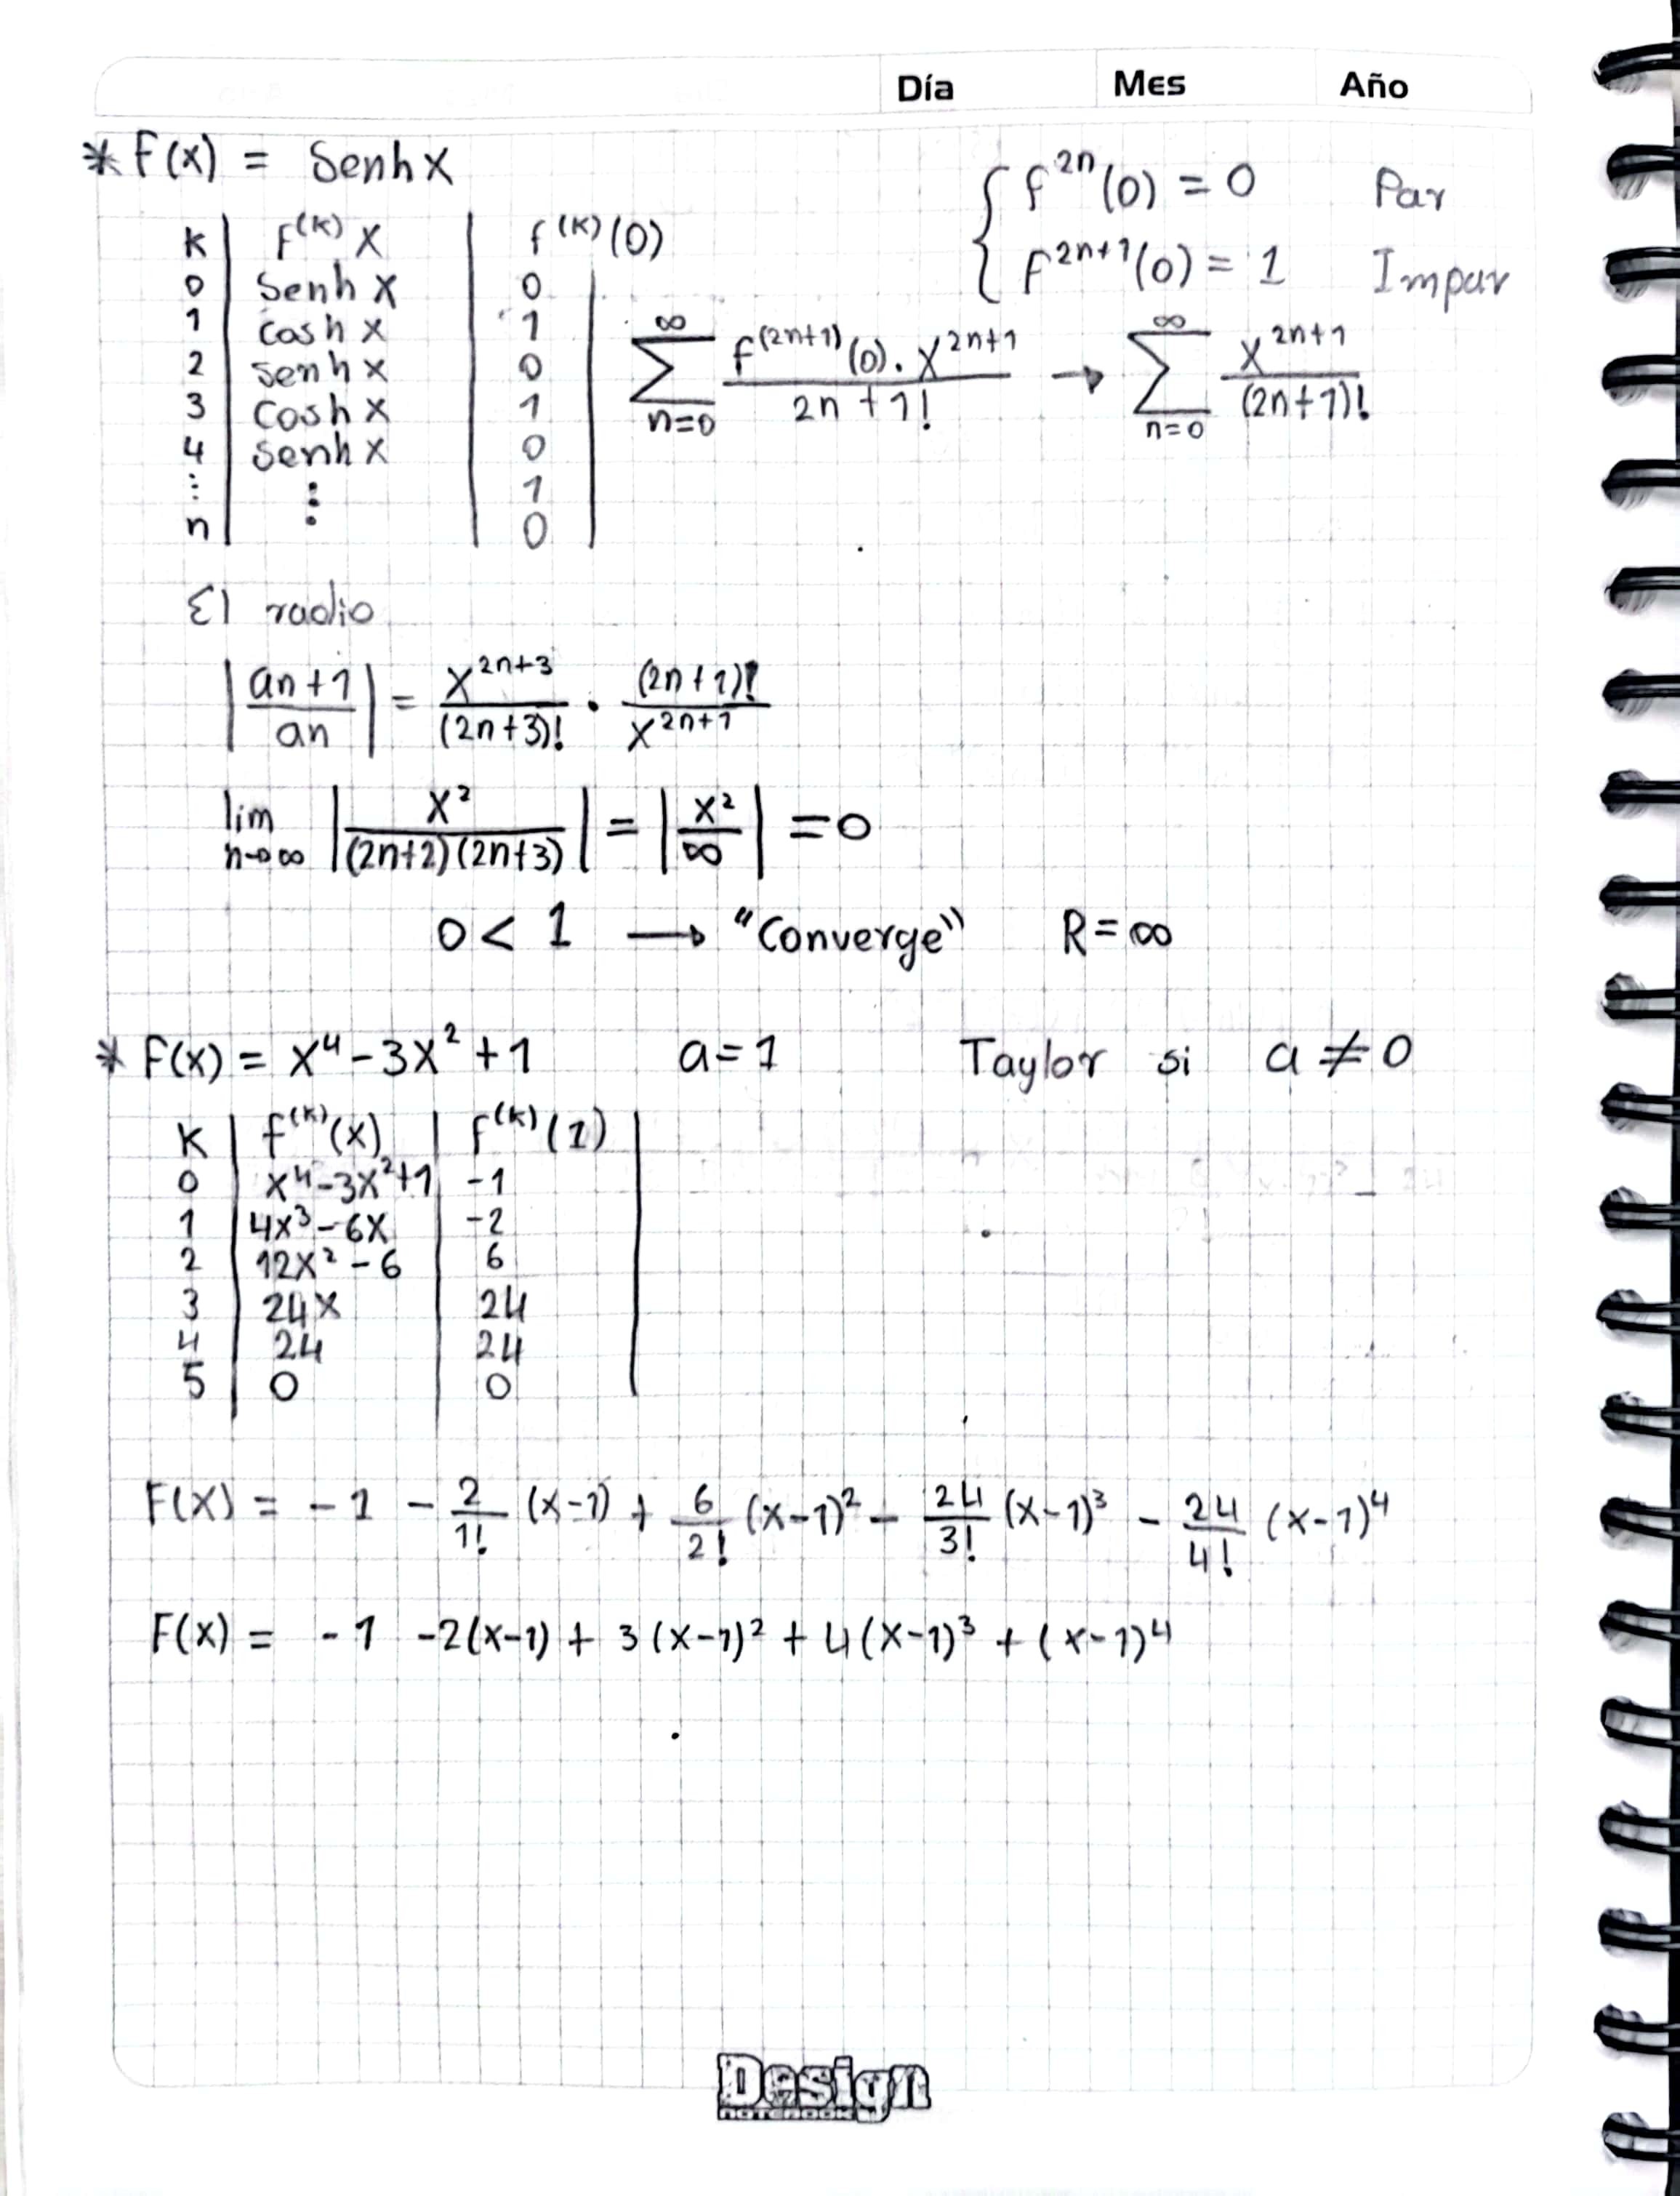 Día Mes Año
* F(x) = Senh x
{ f^{2n}(0) = 0 Par
F^{2n+1}(0) = 1 Impar
K | F^{(k)} x | f^{(k)}(0)
0 | Senh x | 0
1 | cosh x | 1
2 | senh x | 0
3 | Cosh x | 1
4 | senh x | 0
⋮ | ⋮ | 1
n | | 0
∑_{n=0}^{∞} \frac{f^{(2n+1)}(0) . x^{2n+1}}{2n+1!} → ∑_{n=0}^{∞} \frac{x^{2n+1}}{(2n+1)!}
El radio
|\frac{an+1}{an}| = \frac{x^{2n+3}}{(2n+3)!} · \frac{(2n+1)!}{x^{2n+1}}
lim_{n→∞} |\frac{x^2}{(2n+2)(2n+3)}| = |\frac{x^2}{∞}| = 0
0 < 1 → "Converge" R = ∞
* F(x) = x^4 - 3x^2 + 1 a = 1 Taylor si a ≠ 0
K | f^{(k)}(x) | f^{(k)}(1)
0 | x^4-3x^2+1 | -1
1 | 4x^3-6x | -2
2 | 12x^2-6 | 6
3 | 24x | 24
4 | 24 | 24
5 | 0 | 0
F(x) = -1 - \frac{2}{1!} (x-1) + \frac{6}{2!} (x-1)^2 - \frac{24}{3!} (x-1)^3 - \frac{24}{4!} (x-1)^4
F(x) = -1 -2(x-1) + 3(x-1)^2 + 4(x-1)^3 + (x-1)^4
Design
NOTEBOOK